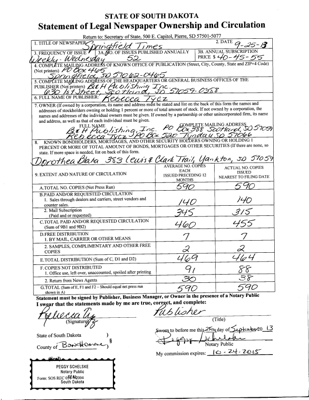 STATE OF SOUTH DAKOTA
Statement of Legal Newspaper Ownership and Circulation
Return to: Secretary of State, 500 E. Capitol, Pierre, SD 57501-5077
1. TITLE OF NEWSPAPER Springfield Times
2. DATE 9-25-13
3. FREQUENCY OF ISSUE Weekly Wednesday
3A. NO. OF ISSUES PUBLISHED ANNUALLY 52
3B. ANNUAL SUBSCRIPTION PRICE $ 40-45-55
4. COMPLETE MAILING ADDRESS OF KNOWN OFFICE OF PUBLICATION (Street, City, County, State and ZIP+4 Code)
(Not printers) PO Box 465
Springfield, SD 57062-0465
5. COMPLETE MAILING ADDRESS OF THE HEADQUARTERS OR GENERAL BUSINESS OFFICES OF THE
PUBLISHER (Not printers) B & H Publishing Inc
Scotland, SD 57059-0388
6. FULL NAME OF PUBLISHER: Rebecca Tycz
7. OWNER (If owned by a corporation, its name and address must be stated and list on the back of this form the names and
addresses of stockholders owning or holding 1 percent or more of total amount of stock. If not owned by a corporation, the
names and address of the individual owners must be given. If owned by a partnership or other unincorporated firm, its name
and address, as well as that of each individual must be given.
FULL NAME
COMPLETE MAILING ADDRESS
B & H Publishing, Inc. PO Box 388 Scotland SD 57059
Rebecca Tycz PO Box Tyndall SD 57066
8. KNOWN BONDHOLDERS, MORTGAGES, AND OTHER SECURITY HOLDERS OWNING OR HOLDING 1
PERCENT OR MORE OF TOTAL AMOUNT OF BONDS, MORTGAGES OR OTHER SECURITIES (If there are none, so
state. If more space is needed, list on back of this form.
Dorothea 383 Lewis & Clark Trail, Yankton, SD 57059
9. EXTENT AND NATURE OF CIRCULATION
AVERAGE NO. COPIES EACH ISSUED PRECEDING 12 MONTHS
ACTUAL NO. COPIES ISSUED NEAREST TO FILING DATE
A. TOTAL NO. COPIES (Net Press Run) 590 590
B. PAID AND/OR REQUESTED CIRCULATION
1. Sales through dealers and carriers, street vendors and counter sales. 140 140
2. Mail Subscription (Paid and or requested) 345 315
C. TOTAL PAID AND/OR REQUESTED CIRCULATION (Sum of 9B1 and 9B2) 460 455
D. FREE DISTRIBUTION
1. BY MAIL, CARRIER OR OTHER MEANS 7 7
2. SAMPLES, COMPLIMENTARY AND OTHER FREE COPIES 2 2
E. TOTAL DISTRIBUTION (Sum of C, D1 and D2) 469 464
F. COPIES NOT DISTRIBUTED
1. Office use, left over, unaccounted, spoiled after printing 91 88
2. Return from News Agents 30 38
G. TOTAL (Sum of E, F1 and F2 – Should equal net press run shown in A) 590 590
Statement must be signed by Publisher, Business Manager, or Owner in the presence of a Notary Public
I swear that the statements made by me are true, correct, and complete:
Rebecca Tycz
(Signature)
Publisher
(Title)
State of South Dakota )
County of Bon Homme )
Sworn to before me this 25 day of September 20 13
Peggy Schelske
Notary Public
My commission expires: 10-24-2015
PEGGY SCHELSKE
Notary Public
South Dakota